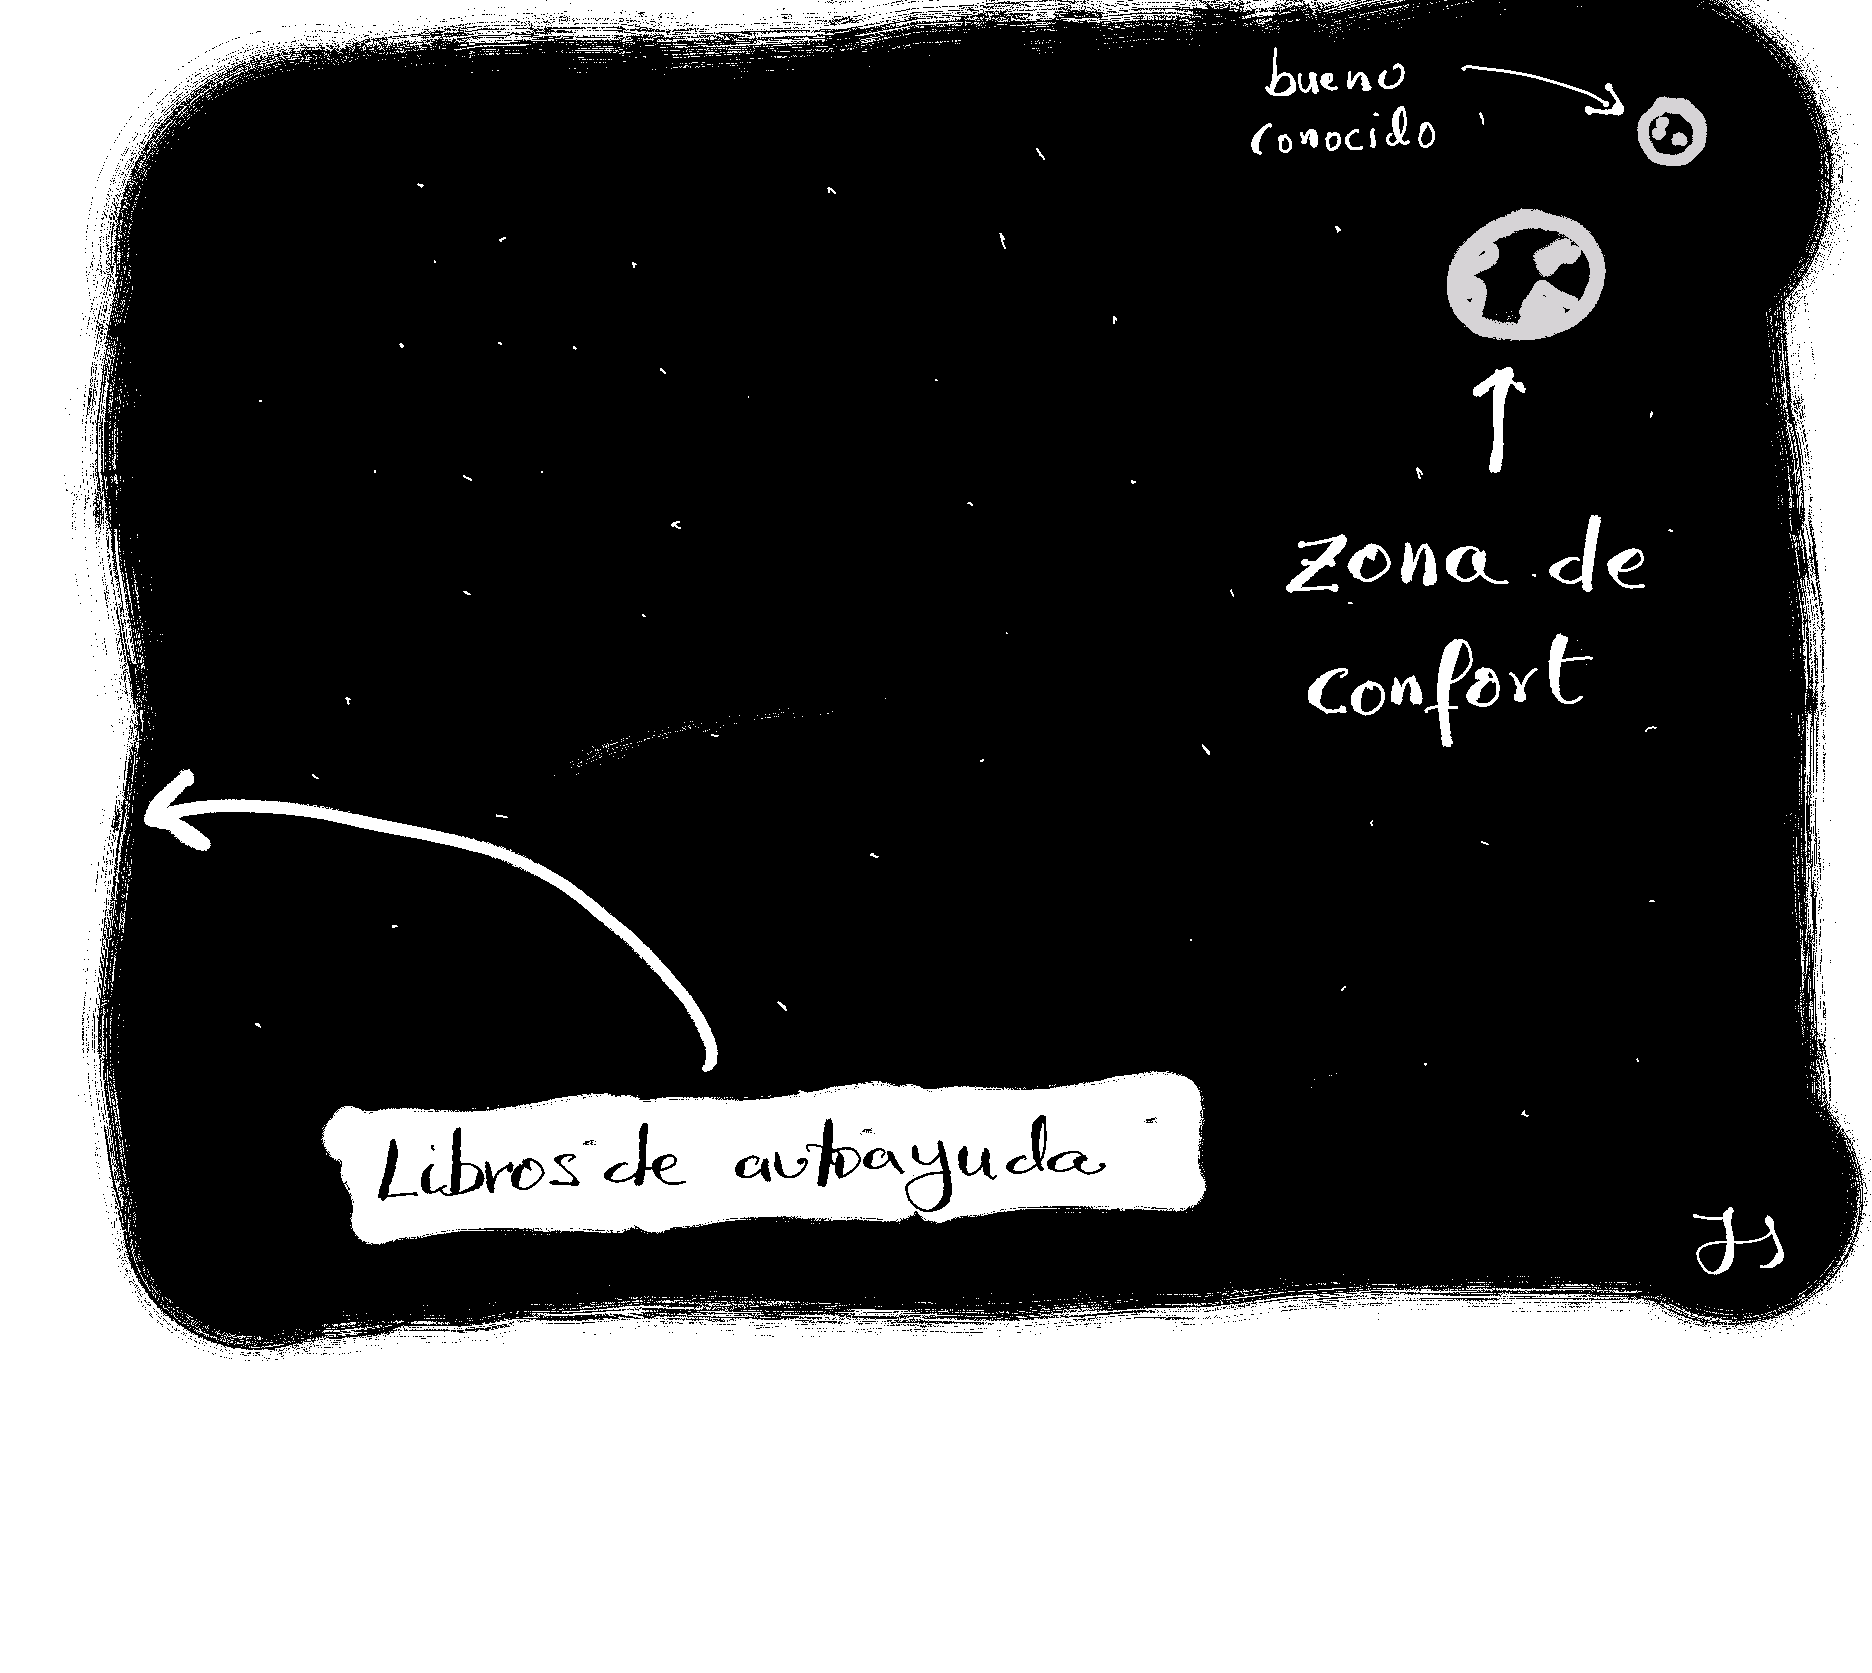 bueno
conocido
zona de
confort
Libros de autoayuda